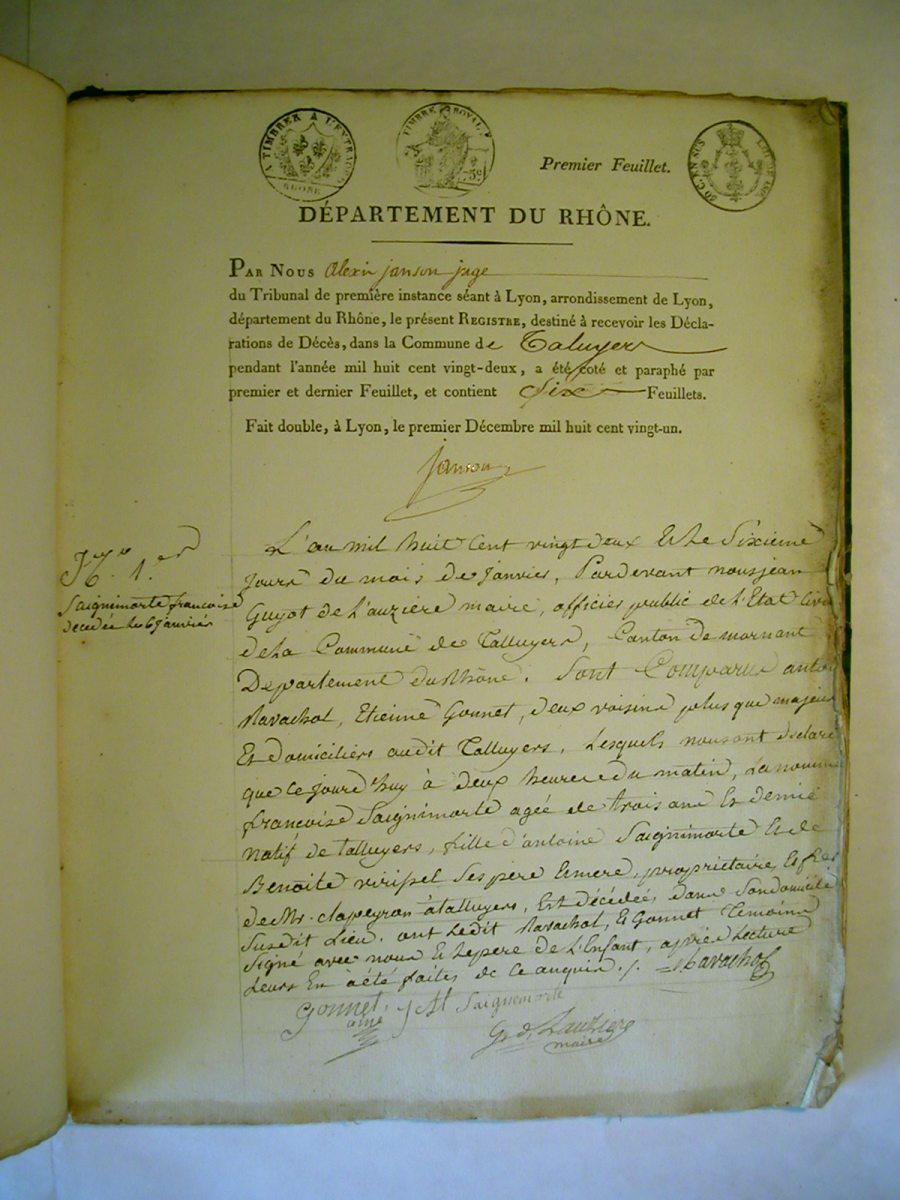 A TIMBRER A L'EXTRAORD.
RHONE
TIMBRE ROYAL
Premier Feuillet.
DÉPARTEMENT DU RHÔNE.
PAR NOUS alexis janson juge
du Tribunal de première instance séant à Lyon, arrondissement de Lyon,
département du Rhône, le présent REGISTRE, destiné à recevoir les Décla-
rations de Décès, dans la Commune de Taluyers
pendant l'année mil huit cent vingt-deux, a été coté et paraphé par
premier et dernier Feuillet, et contient Six Feuillets.
Fait double, à Lyon, le premier Décembre mil huit cent vingt-un.
Janson
N.o 1.er
Saignimorte francoise
décédée le 6 janvier
L'an mil huit cent vingt deux Et le Sixieme
Jours du mois de janvier, Pardevant nous jean
Guyot de Lauziere maire, officier public de l'Etat Civil
de La Commune de Talluyers, Canton de mornant
Département du Rhône. Sont Comparus antoi
Ravachol, Etienne Gonnet, deux voisins plus que majeurs
Et domiciliers audit Talluyers, Lesquels nous ont déclaré
que ce jourd'huy à deux heures du matin, La nommé
francoise Saignimorte agée de trois ans Et demie
natif de talluyers, fille d'antoine Saignimorte Et de
Benoite viripel Ses père Et mere, propriétaire, Et
de Mr. clapeyron à talluyers, Est décédée, dans Son domicile
Susdit Lieu. ont Ledit Ravachol, Et Gonnet Temoins
Signé avec nous Et Le pere de L'Enfant, après Lecture
Leurs En a été faites de Ce anquis ./. Ravachol
Gonnet Saignemorte
ainé
G. de Lauziere
maire